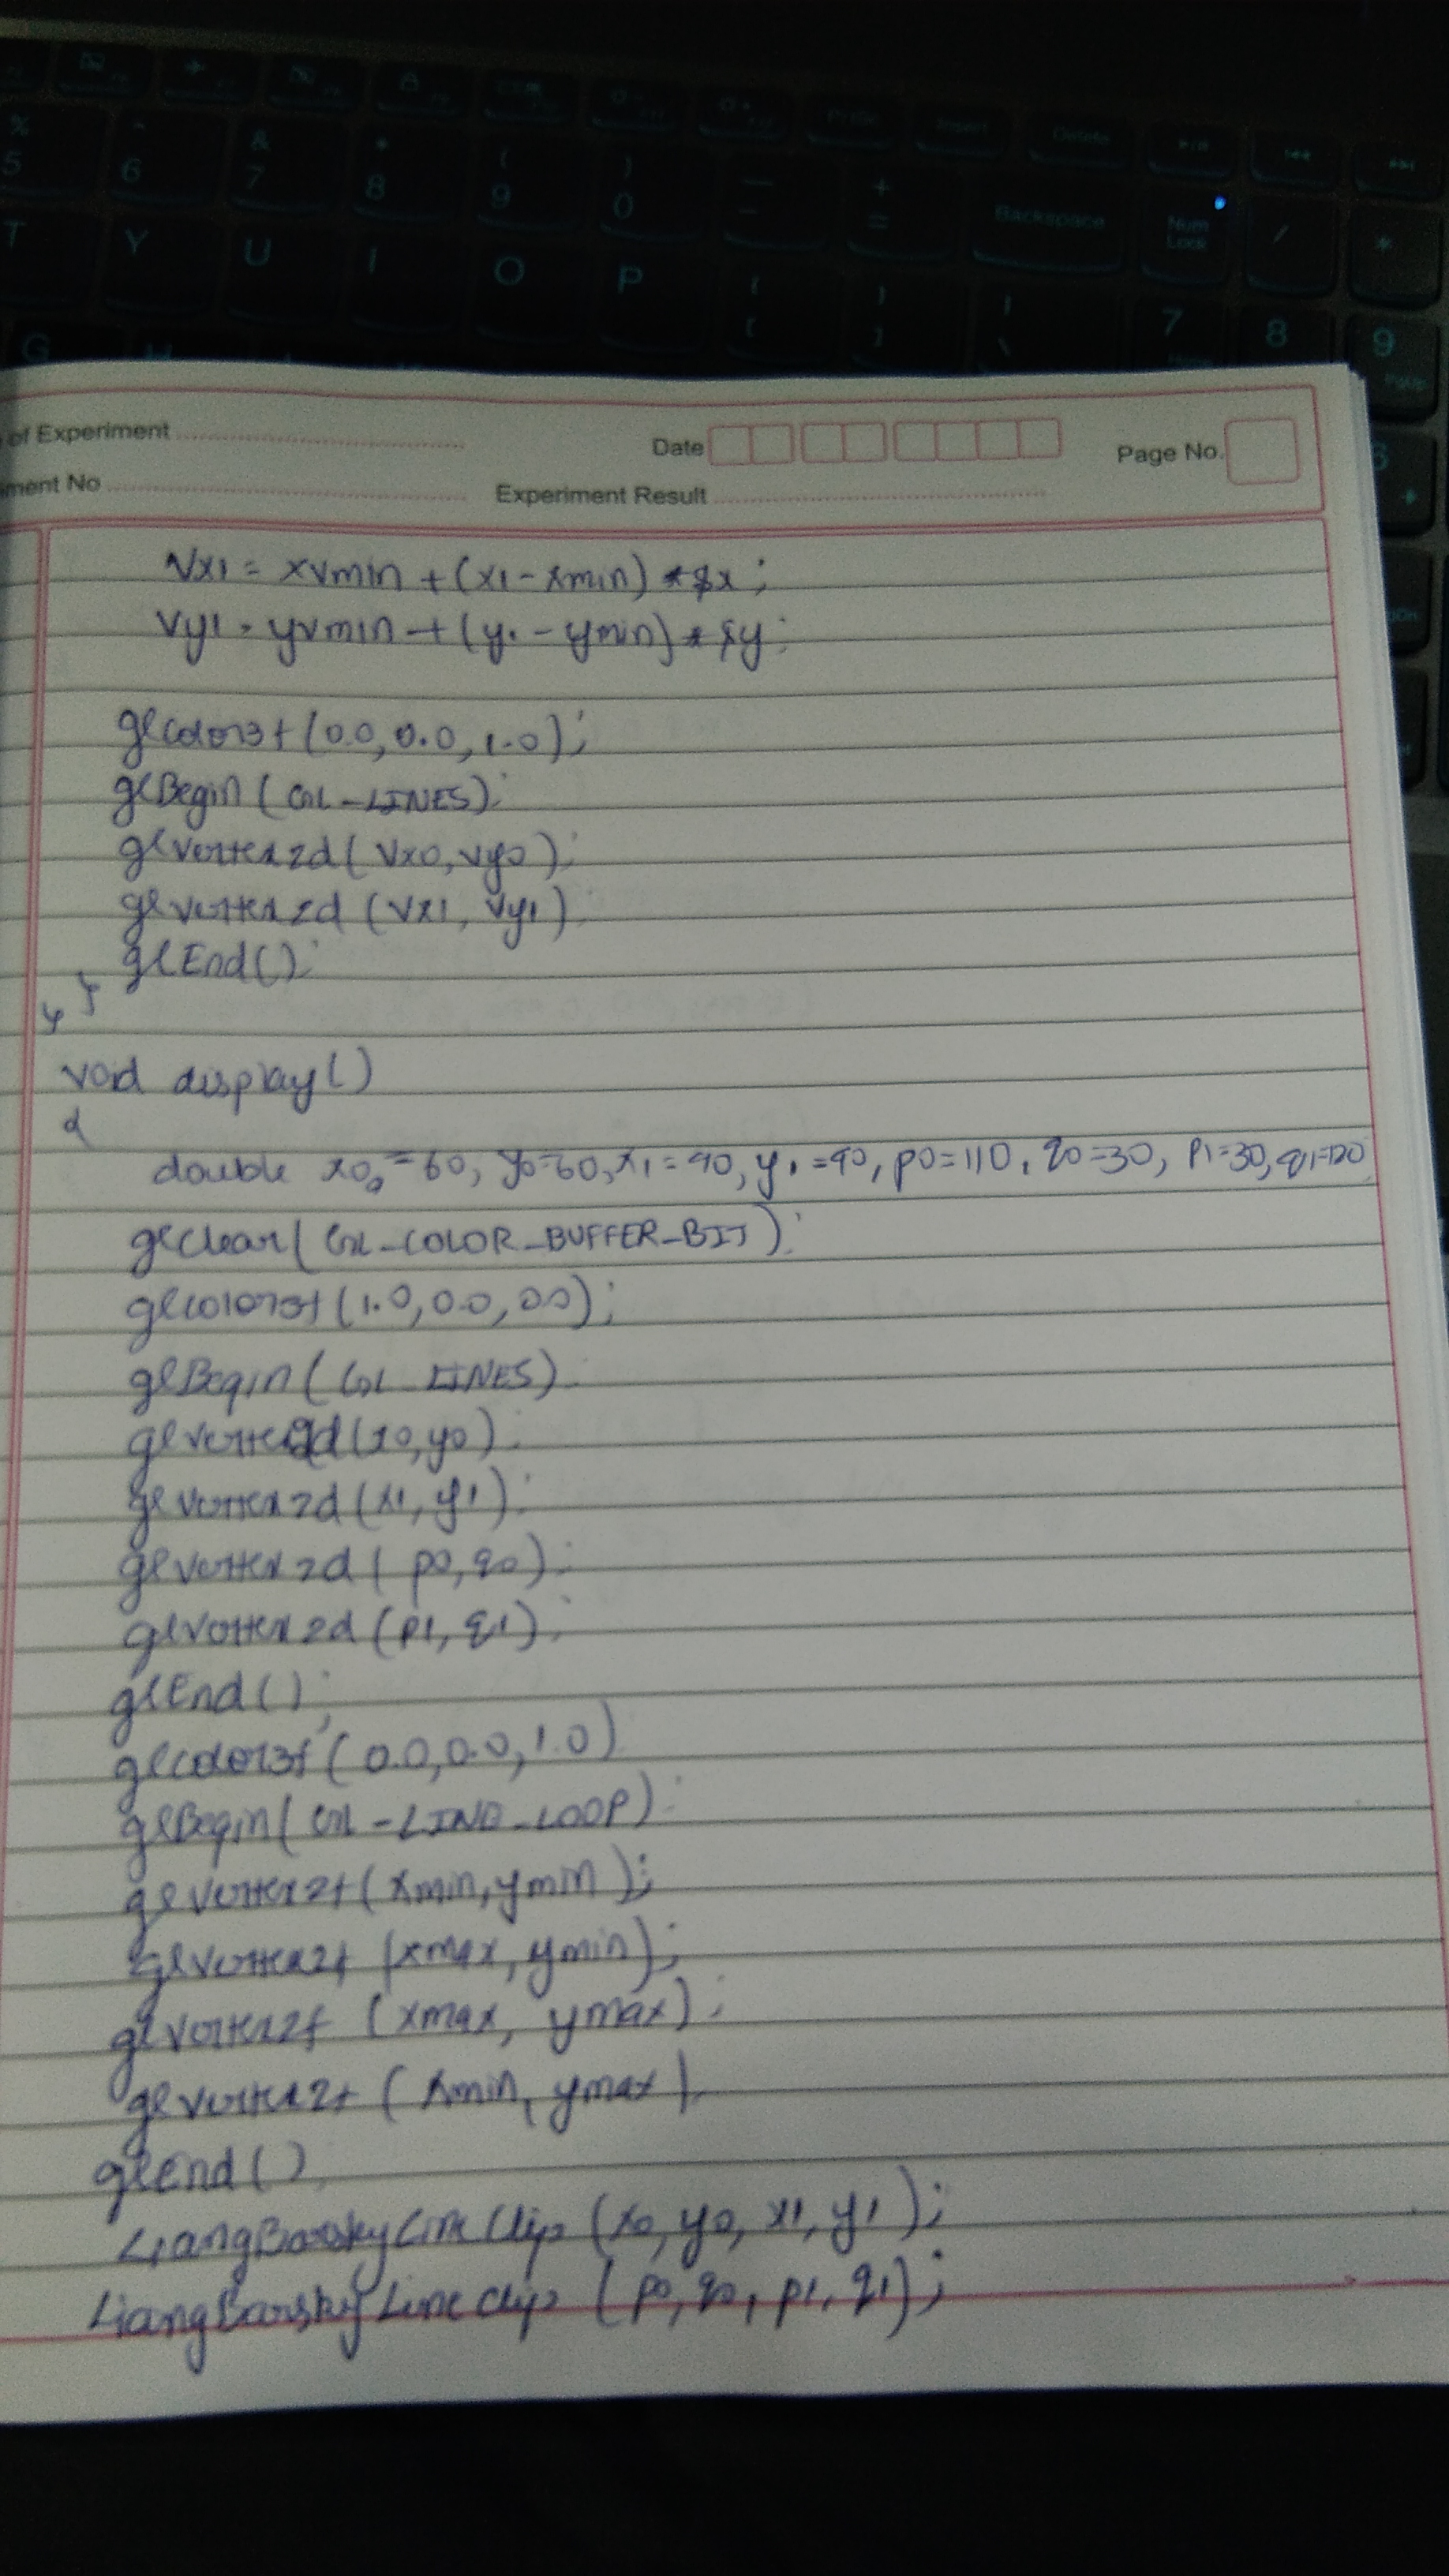 % & * ( ) — +
5 6 7 8 9 0 - = Backspace Num Lock / *
T Y U I O P { [ } ] | \ 7 8 9
G
of Experiment Date Page No.
ment No Experiment Result
Vx1 = xvmin + (x1 - xmin) * sx;
Vy1 = yvmin + (y1 - ymin) * sy;
glColor3f (0.0, 0.0, 1.0);
glBegin (GL-LINES);
glVertex2d (Vx0, Vy0);
glVertex2d (Vx1, Vy1)
glEnd();
}
}
void display()
{
double x0=60, y0=60, x1=90, y1=90, p0=110, q0=30, p1=30, q1=120
glclear( GL-COLOR-BUFFER-BIT );
glcolor3f (1.0, 0.0, 0.0);
glBegin (GL-LINES)
glVertex2d (x0, y0);
glVertex2d (x1, y1);
glVertex2d ( p0, q0);
glVertex2d (p1, q1);
glEnd();
glcolor3f (0.0, 0.0, 1.0)
glBegin( GL-LINE-LOOP);
glVertex2f (xmin, ymin);
glVertex2f (xmax, ymin);
glVertex2f (xmax, ymax);
glVertex2f (xmin, ymax)
glEnd()
LiangBarskyLineClip (x0, y0, x1, y1);
LiangBarskyLineClip (p0, q0, p1, q1);